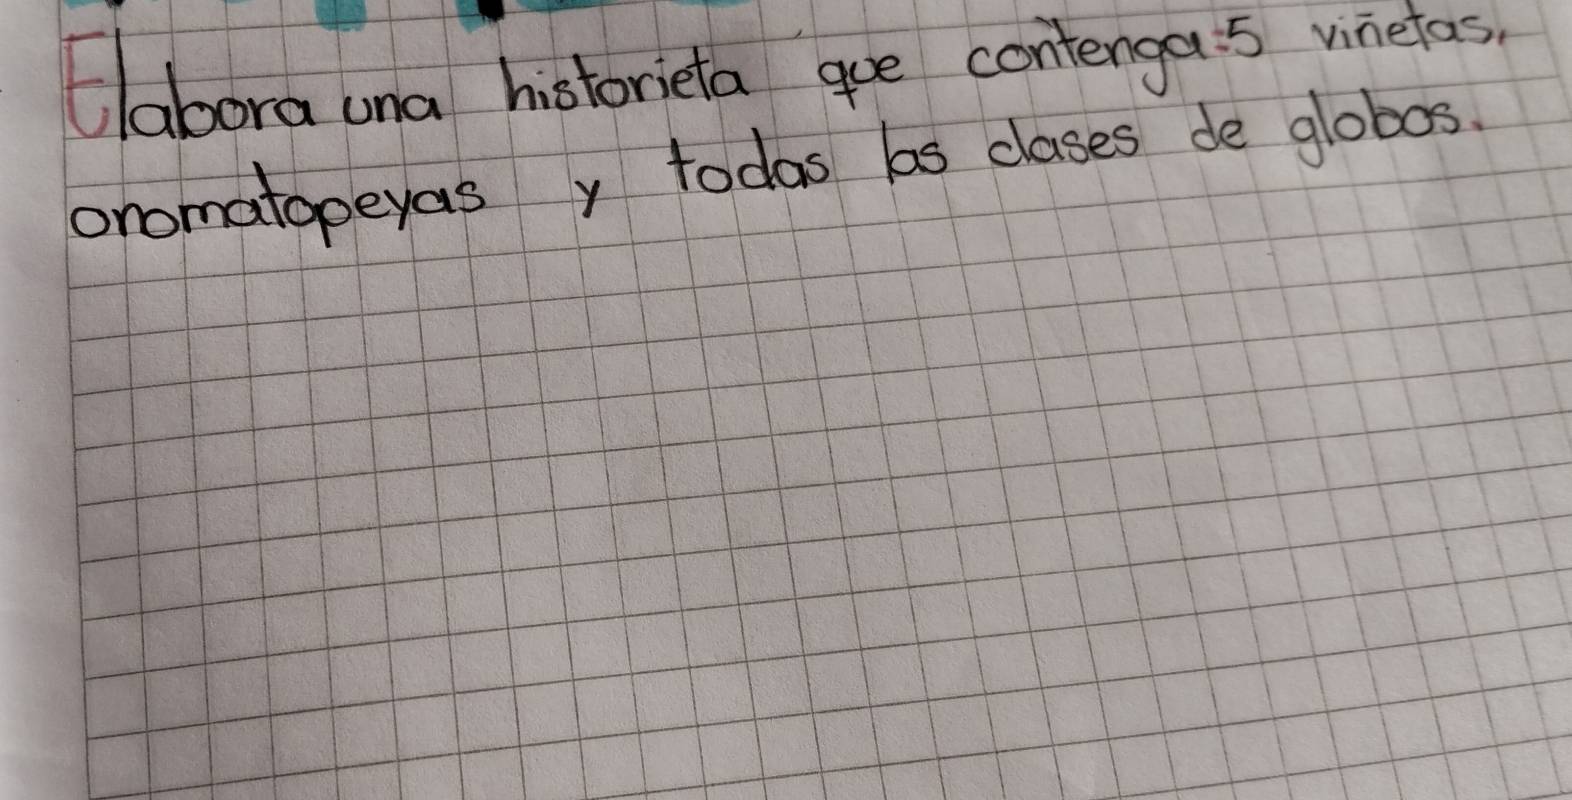 Elabora una historieta que contenga: 5 viñetas,
onomatopeyas y todas las clases de globos.